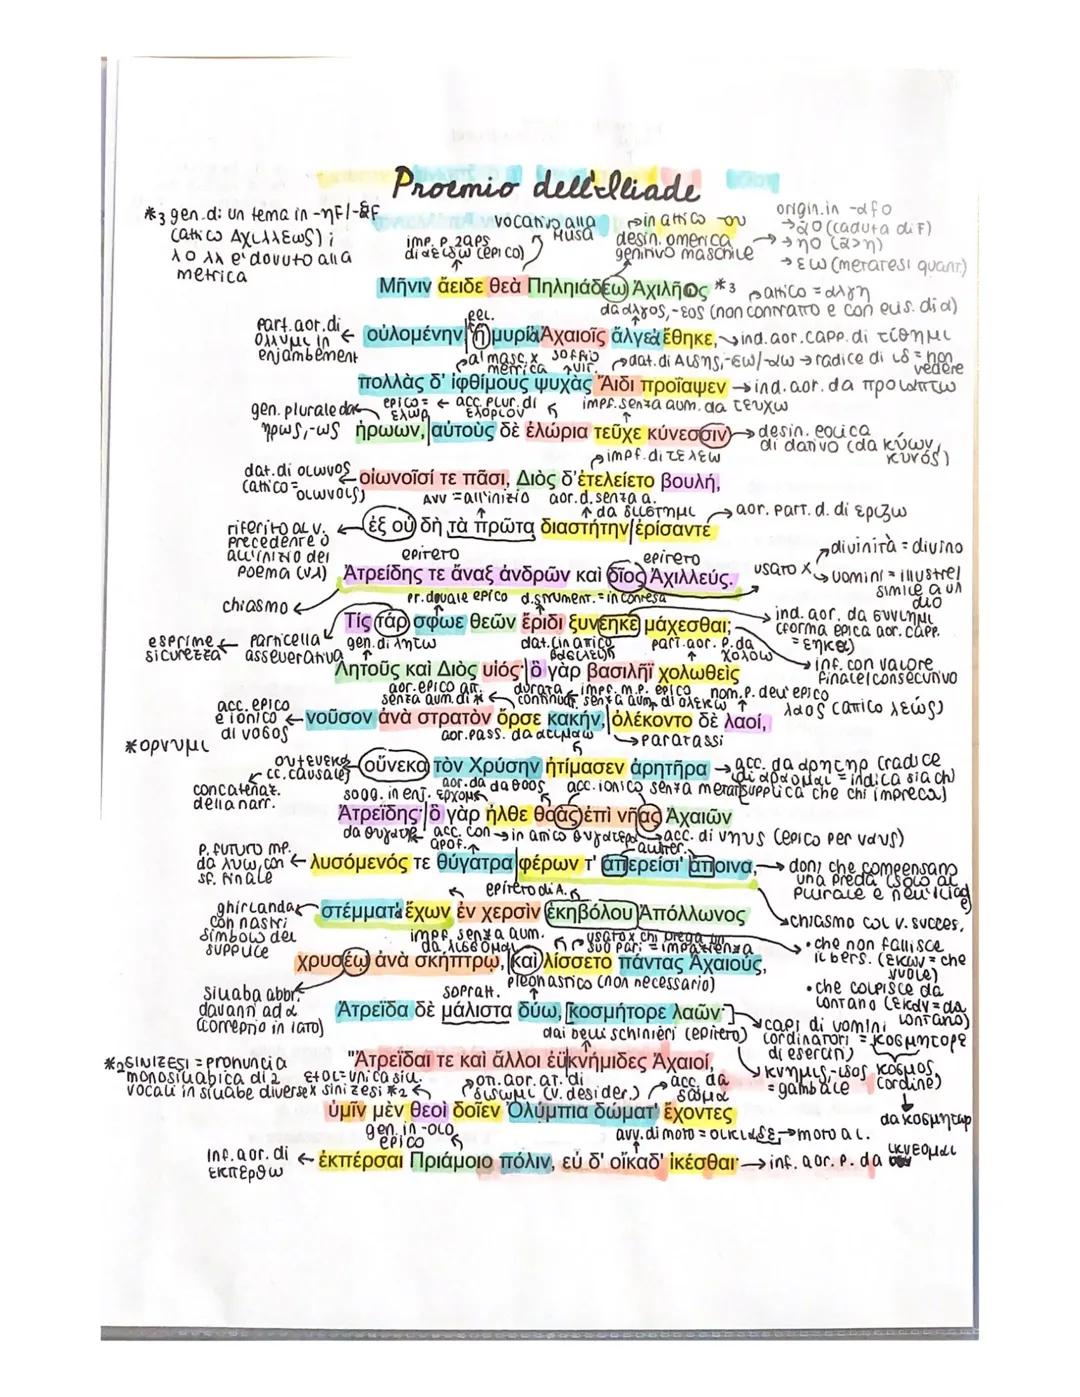 Proemio dell'Iliade
*3 gen. di un tema in -ηϜ/-εϜ
(attico Αχιλλεως);
λο λλ e' dovuto alla
metrica
vocativo alla
Musa
imp. p. 2aps
di αειδω (epico)
in attico -ου
desin. omerica
genitivo maschile
origin. in -αϜο
→ αο (caduta di Ϝ)
→ ηο (α>η)
→ εω (metatesi quant.)
Μῆνιν ἄειδε θεὰ Πηληιάδεω Ἀχιλῆος *3
attico = αλγη
da αλγος, -εος (non contratto e con elis. di α)
part. aor. di
ολλυμι in
enjambement
rel.
οὐλομένην ἣ μυρί' Ἀχαιοῖς ἄλγε' ἔθηκε,
ind. aor. capp. di τίθημι
al masc. x
metrica
soffio
vir.
dat. di Αιδης, -εω/-αω → radice di ιδ = non
vedere
πολλὰς δ' ἰφθίμους ψυχὰς Ἄϊδι προΐαψεν
ind. aor. da προιαπτω
gen. plurale da
ηρως, -ωος
epico =
ελωρ
acc. plur. di
ελοριον
impf. senza aum. da τευχω
ἡρώων, αὐτοὺς δὲ ἑλώρια τεῦχε κύνεσσιν
desin. eolica
di dativo (da κύων,
κυνός)
impf. di τελεω
dat. di οιωνος
(attico =
οιωνοις)
οἰωνοῖσί τε πᾶσι, Διὸς δ' ἐτελείετο βουλή,
avv = all'inizio
aor. d. senza a.
da διιστημι
aor. part. d. di εριζω
riferito al v.
precedente o
all'inizio del
poema (v1)
ἐξ οὗ δὴ τὰ πρῶτα διαστήτην ἐρίσαντε
epiteto
epiteto
usato x
divinità = divino
uomini = illustre/
simile a un
dio
Ἀτρεΐδης τε ἄναξ ἀνδρῶν καὶ δῖος Ἀχιλλεύς.
chiasmo
pr. duale epico
d. strument. = in contesa
ind. aor. da συνιημι
(forma epica aor. capp.
= εηκε)
Τίς τάρ σφωε θεῶν ἔριδι ξυνέηκε μάχεσθαι;
esprime
sicurezza
particella
asseverativa
gen. di Λητω
dat. (in attico
βασιλεῖ)
part. aor. p. da
χολοω
inf. con valore
finale/consecutivo
Λητοῦς καὶ Διὸς υἱός· ὃ γὰρ βασιλῆϊ χολωθεὶς
acc. epico
e ionico
di νοσος
aor. epico att.
senza aum. di *
durata
continua
impf. m.p. epico
senza aum. di ολεκω
nom. p. dell'epico
λαος (attico λεώς)
νοῦσον ἀνὰ στρατὸν ὄρσε κακήν, ὀλέκοντο δὲ λαοί,
*ορνυμι
aor. pass. da ατιμαω
paratassi
ου ενεκα
cc. causale
οὕνεκα τὸν Χρύσην ἠτίμασεν ἀρητῆρα
acc. da αρητηρ (radice
di αραομαι = indica sia chi
supplica che chi impreca)
concatenaz.
della narr.
sogg. in enj.
aor. da
ερχομαι
da θοος
acc. ionico senza metat.
Ἀτρεΐδης· ὃ γὰρ ἦλθε θοὰς ἐπὶ νῆας Ἀχαιῶν
da θυγατηρ
acc. con
apof.
in attico θυγατερα
acc. di νηυς (epico per ναυς)
p. futuro mp.
da λυω, con
sf. finale
λυσόμενός τε θύγατρα φέρων τ' ἀπερείσι' ἄποινα,
doni che compensano
una preda (solo al
plurale e nell'Iliade)
epiteto di A.
ghirlanda
con nastri
simbolo del
supplice
στέμματ' ἔχων ἐν χερσὶν ἑκηβόλου Ἀπόλλωνος
chiasmo col v. succes.
impf. senza aum.
da λισσομαι
usato x chi prega un
suo pari = impazienza
• che non fallisce
il bers. (εκων = che
vuole)
χρυσέῳ ἀνὰ σκήπτρῳ, καὶ λίσσετο πάντας Ἀχαιούς,
pleonastico (non necessario)
• che colpisce da
lontano (εκαν = da
lontano)
sillaba abbr.
davanti ad α
(correptio in iato)
sopratt.
Ἀτρεΐδα δὲ μάλιστα δύω, κοσμήτορε λαῶν·
capi di uomini
(ordinatori = κοσμητορε
di eserciti)
dai begli schinieri (epiteto)
"Ἀτρεΐδαι τε καὶ ἄλλοι ἐϋκνήμιδες Ἀχαιοί,
κνημις, -ιδος
= gambale
κοσμος,
(ordine)
da κοσμητωρ
*2 SINIZESI = pronuncia
monosillabica di 2
vocali in sillabe diverse
unica sill.
x sinizesi *2
ott. aor. at. di
διδωμι (v. desider.)
acc. da
δωμα
ὑμῖν μὲν θεοὶ δοῖεν Ὀλύμπια δώματ' ἔχοντες
gen. in -οιο
epico
avv. di moto = οικιαδε → moto a l.
inf. aor. di
εκπερθω
ἐκπέρσαι Πριάμοιο πόλιν, εὖ δ' οἴκαδ' ἱκέσθαι·
inf. aor. p. da
ικνεομαι